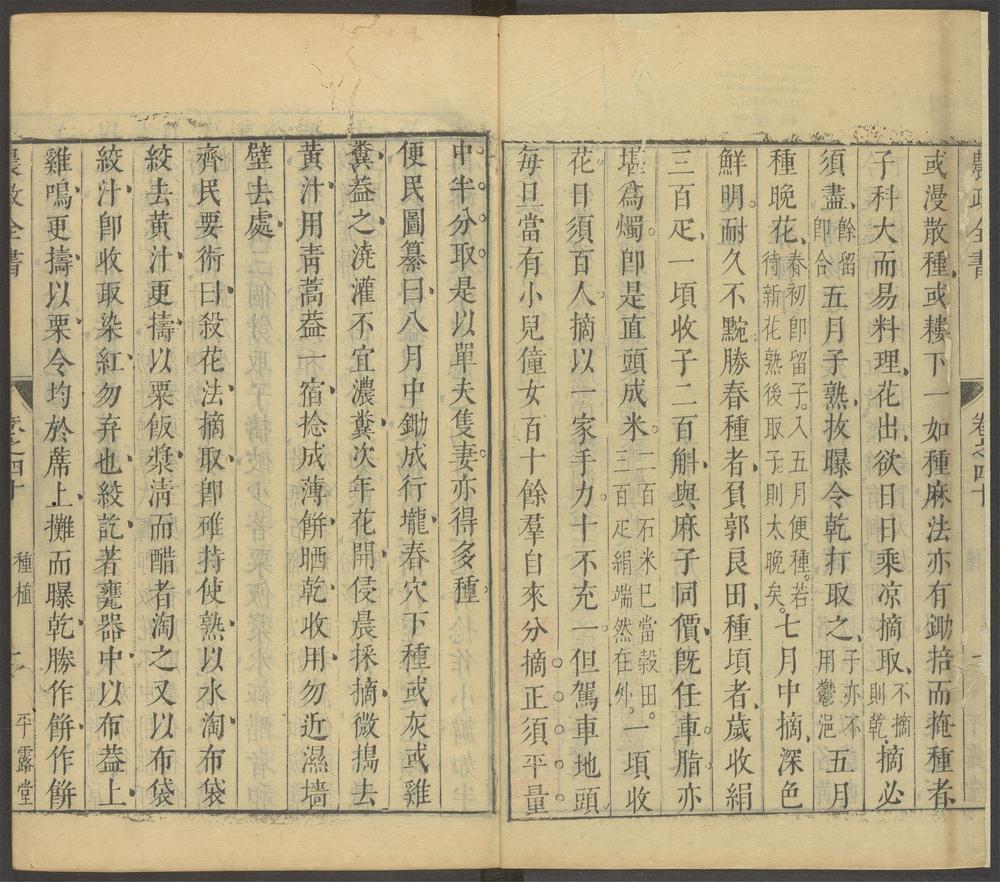 或漫散種或耬下一如種麻法亦有鋤掊而掩種者
子科大而易料理花出欲日日乘凉摘取不摘則乾摘必
須盡餘留即合五月子熟㧞曝令乾打取之子亦不用鬱浥五月
種晚花春初即留子入五月便種若待新花熟後取子則太晚矣七月中摘深色
鮮明耐久不黦勝春種者負郭良田種頃者歲收絹
三百疋一頃收子二百斛與麻子同價旣任車脂亦
堪爲燭卽是直頭成米二百石米巳當穀田三百疋絹端然在外一頃收
花日須百人摘以一家手力十不充一但駕車地頭
每旦當有小兒僮女百十餘羣自來分摘正須平量
中半分取是以單夫隻妻亦得多種
便民圖纂曰八月中鋤成行壠春穴下種或灰或雞
糞葢之澆灌不宜濃糞次年花開侵晨採摘微搗去
黃汁用靑蒿葢一宿捻成薄餅晒乾收用勿近濕墻
壁去處
齊民要術曰殺花法摘取卽碓持使熟以水淘布袋
絞去黃汁更擣以粟飯漿淸而醋者淘之又以布袋
絞汁卽收取染紅勿弃也絞訖著甕器中以布葢上
雞鳴更擣以栗令均於蓆上攤而曝乾勝作餅作餅
農政全書
卷之四十
種植
平露堂
農政全書
卷之四十
種